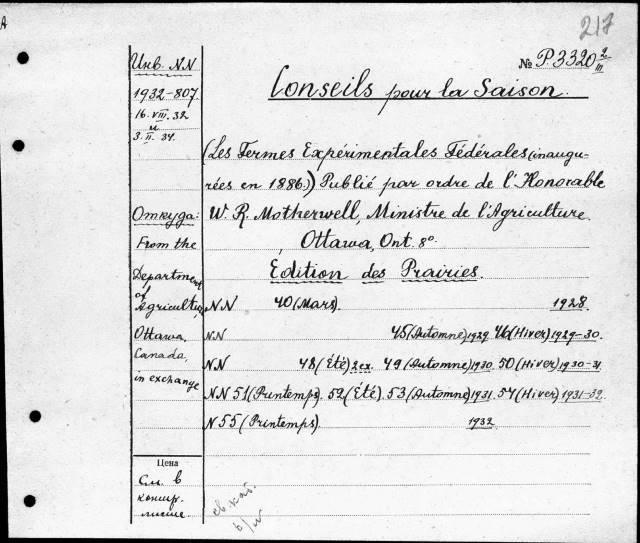 A
217
№ P.3320 2/III
Инв. NN
1932-807.
16. VIII. 32
и
3. II. 34.
Conseils pour la Saison.
(Les Fermes Expérimentales Fédérales (inaugu-
rées en 1886.)) Publié par ordre de l'Honorable
W. R. Motherwell, Ministre de l'Agriculture.
Ottawa, Ont. 8°.
Edition des Prairies.
Откуда:
From the
Department
of
Agriculture
Ottawa,
Canada,
in exchange
NN 40 (Mars). 1928.
NN 45 (Automne) 1929 46 (Hiver) 1929-30.
NN 48 (Été) 2 ex. 49 (Automne) 1930. 50 (Hiver) 1930-31.
NN 51 (Printemps). 52 (Été). 53 (Automne) 1931. 54 (Hiver) 1931-32.
N 55 (Printemps). 1932.
Цена
См. в
концр.
листе